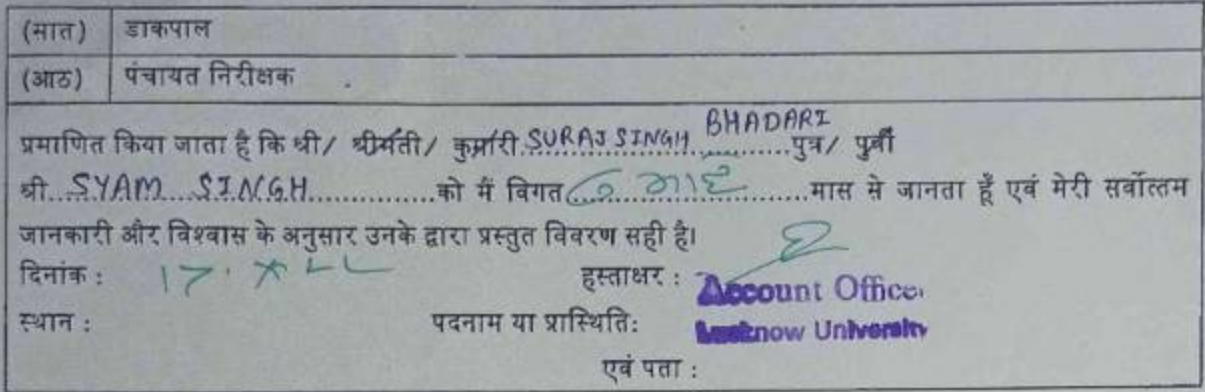 (सात) डाकपाल
(आठ) पंचायत निरीक्षक
BHADARI
प्रमाणित किया जाता है कि श्री/ श्रीमती/ कुमारी SURAJ SINGH ............पुत्र/ पुत्री
श्री..SYAM SINGH..............को मैं विगत ............मास से जानता हूँ एवं मेरी सर्वोत्तम
जानकारी और विश्वास के अनुसार उनके द्वारा प्रस्तुत विवरण सही है।
दिनांक : हस्ताक्षर :
Account Office
स्थान : पदनाम या प्रास्थिति: Lucknow University
एवं पता :